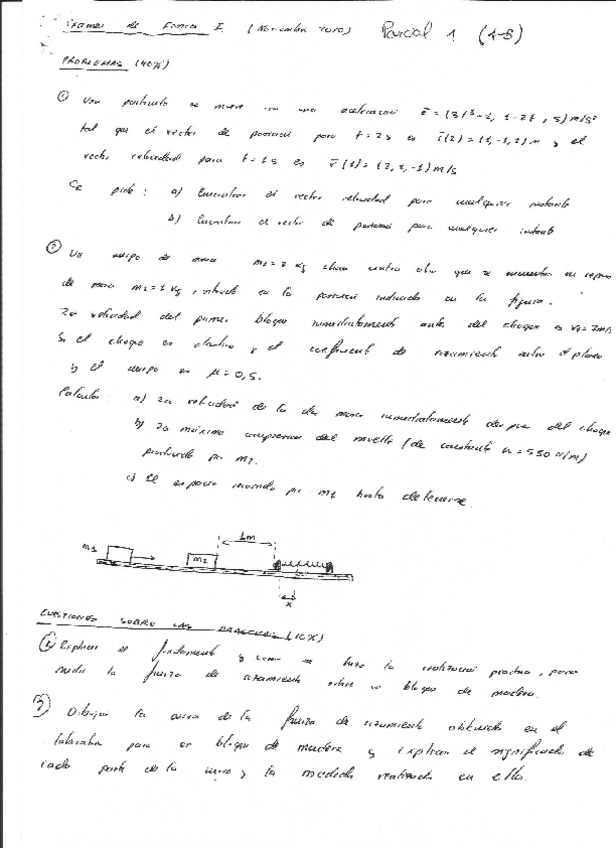 Examen de Física I (Noviembre 2010) Parcial 1 (A-B)
PROBLEMAS (40%)
① Una partícula se mueve con una aceleración = (3t²-1, 1-2t, 5) m/s²
tal que el vector de posición para t=2s es r(2)=(1,-1,2)m y el
vector velocidad para t=1s es v(1)=(2, , -1) m/s
Se pide: a) Encontrar el vector velocidad para cualquier instante
b) Encontrar el vector de posición para cualquier instante
② Un cuerpo de masa kg choca contra otro que se encuentra en reposo
de masa kg, situado en la posición indicada en la figura.
La velocidad del primer bloque inmediatamente antes del choque es m/s
Si el choque es elástico y el coeficiente de rozamiento entre el plano
y el cuerpo es μ=0,5.
Calcular: a) La velocidad de la dos masas inmediatamente después del choque
b) La máxima compresión del muelle (de constante k=550 N/m)
producida por m2.
c) El espacio recorrido por m1 hasta detenerse.
1m
m1 m2
x
CUESTIONES SOBRE LAS PRÁCTICAS (10%)
Explicar el fundamento y como se hizo la realización práctica, para
medir la fuerza de rozamiento sobre un bloque de madera.
Dibujar la curva de la fuerza de rozamiento obtenida en el
laboratorio para un bloque de madera y explicar el significado de
cada parte de la curva y la medida realizada en ella.